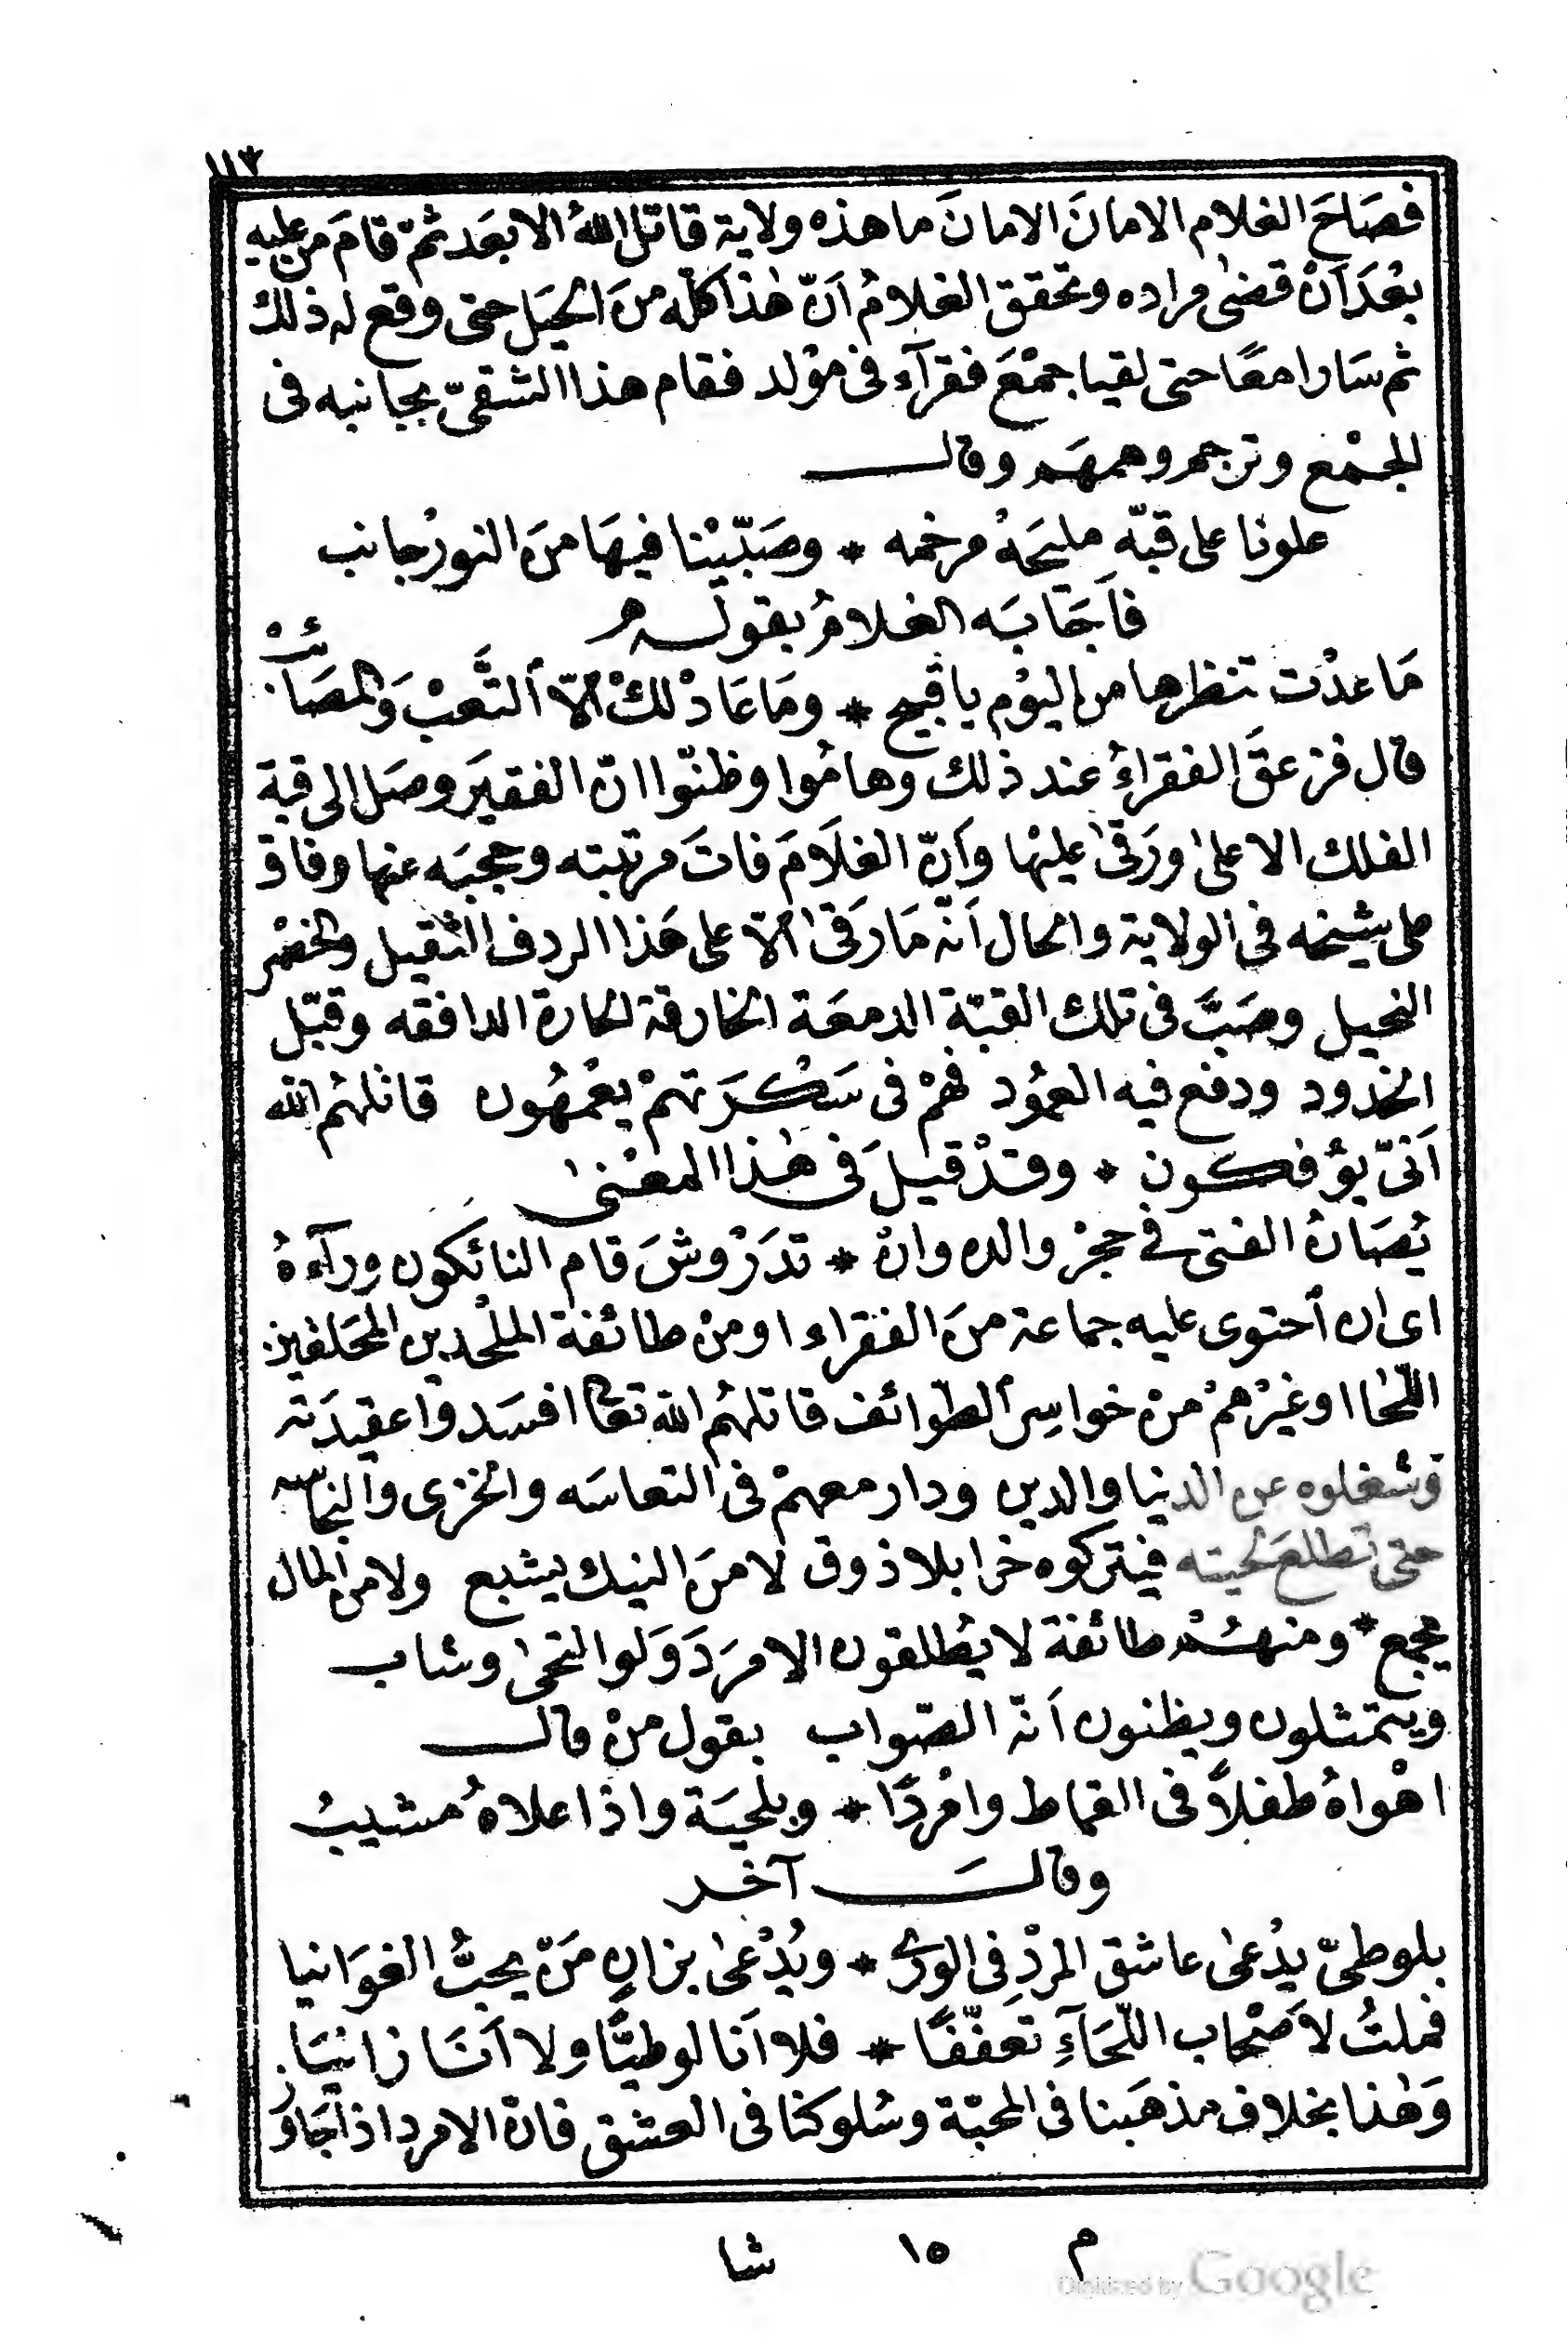 ١١٣
فصَاحَ الغلام الامانَ الامانَ ما هذه ولاية قاتل اللهُ الابعَد ثمّ قامَ من عليه
بعْدَ اَنْ قضىٰ مراده وتحقق الغلامُ اَنّ هٰذا كلّه منَ الحيَل حتى وقع له ذلك
ثم سَارا معًا حتى لقيا جمْعَ فقرآء فى موْلد فقام هذا الشقىّ بجانبه فى
الجمْع وترجم وهمهَم وقال
علونا على قبّهِ مليحَهْ مرخمه * وصَبّيْنا فيهَا منَ النورْ جانب
فاَجَابَه الغلامُ بقوله
مَا عدْت تنظرها من اليوْم يا قبيح * ومَا عَادْ لكْ الّا ٱلتَّعبْ وَالمصَائبْ
قال فزعقَ الفقراءُ عند ذلك وهامُوا وظنّوا انّ الفقيرَ وصَل الى قبة
الفلك الاعلىٰ ورَقىٰ عليْها وَاَنّ الغلَامَ فاتَ مرتبته وحجبَه عنها وفاق
على شيخه فى الولاية والحال اَنّه مَا رَقىٰ الّا على هَذا الردف الثقيل والخصْر
النحيل وصَبَّ فى تلك القبّة الدمعَة الخارقة الحارة الدافقه وقبّل
الخدود ودفع فيه العمُود فهُمْ فى سَكْرَتهمْ يعْمَهُون قاتلهُم الله
اَنىّ يؤفكون * وقدْ قيلَ فى هٰذا المعْنىٰ
يُصَانُ الفتى فى حجرْ والده وانْ * تدَرْوشَ قام النائكون ورآءهُ
اى ان ٱحتوى عليه جماعة منَ الفقراء او منْ طائفة الملْحدين المحَلقين
اللّحٰا او غيْرهمْ منْ خواسِر ٱلطّوائف قاتلهُم الله تعالى افسَدوا عقيدَته
وَشغلوه عن الدنيا والدين ودار معهمْ فى التعاسَه والخزى والنجاسه
حتى تطلعَ لحيته فيتركوه خرا بلا ذوق لا منَ النيك يشبع ولا من المال
يجمع * ومنهُمْ طائفة لا يُطلقون الامرَدَ وَلو التحىٰ وشاب
ويتمثلون ويظنون اَنّه الصّواب بقول منْ قال
اهْواهُ طفلاً فى القماط وامْردًا * وبلحيَة واذا علاهُ مشيبُ
وقالَ آخر
بلوطىّ يدْعىٰ عاشق المرْدِ فى الورىٰ * ويُدْعىٰ بزانٍ مَنْ يحبُّ الغوَانيا
فملتُ لاَصْحاب اللّحَآءِ تعَفّفًا * فلا اَنا لوطيًّا ولا اَنَا زانيَا
وَهٰذا بخلاف مذهَبنا فى المحَبّة وسُلوكنا فى العشق فانّ الامرد اذا جَاوَز
م ١٥ شا
Digitized by Google